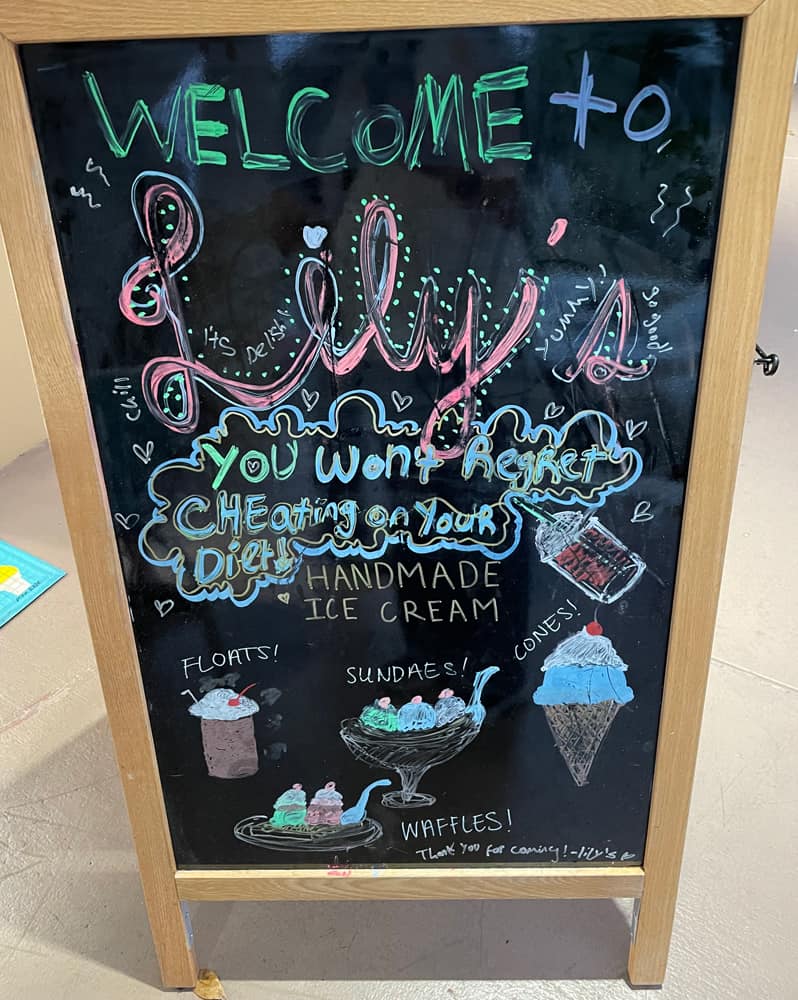 WELCOME to
Lily's
It's Delish!
Yummy!
so good
chill
YOU Won't Regret
CHEating on Your
Diet!
HANDMADE
ICE CREAM
CONES!
FLOATS!
SUNDAES!
WAFFLES!
Thank you for coming! -lily's